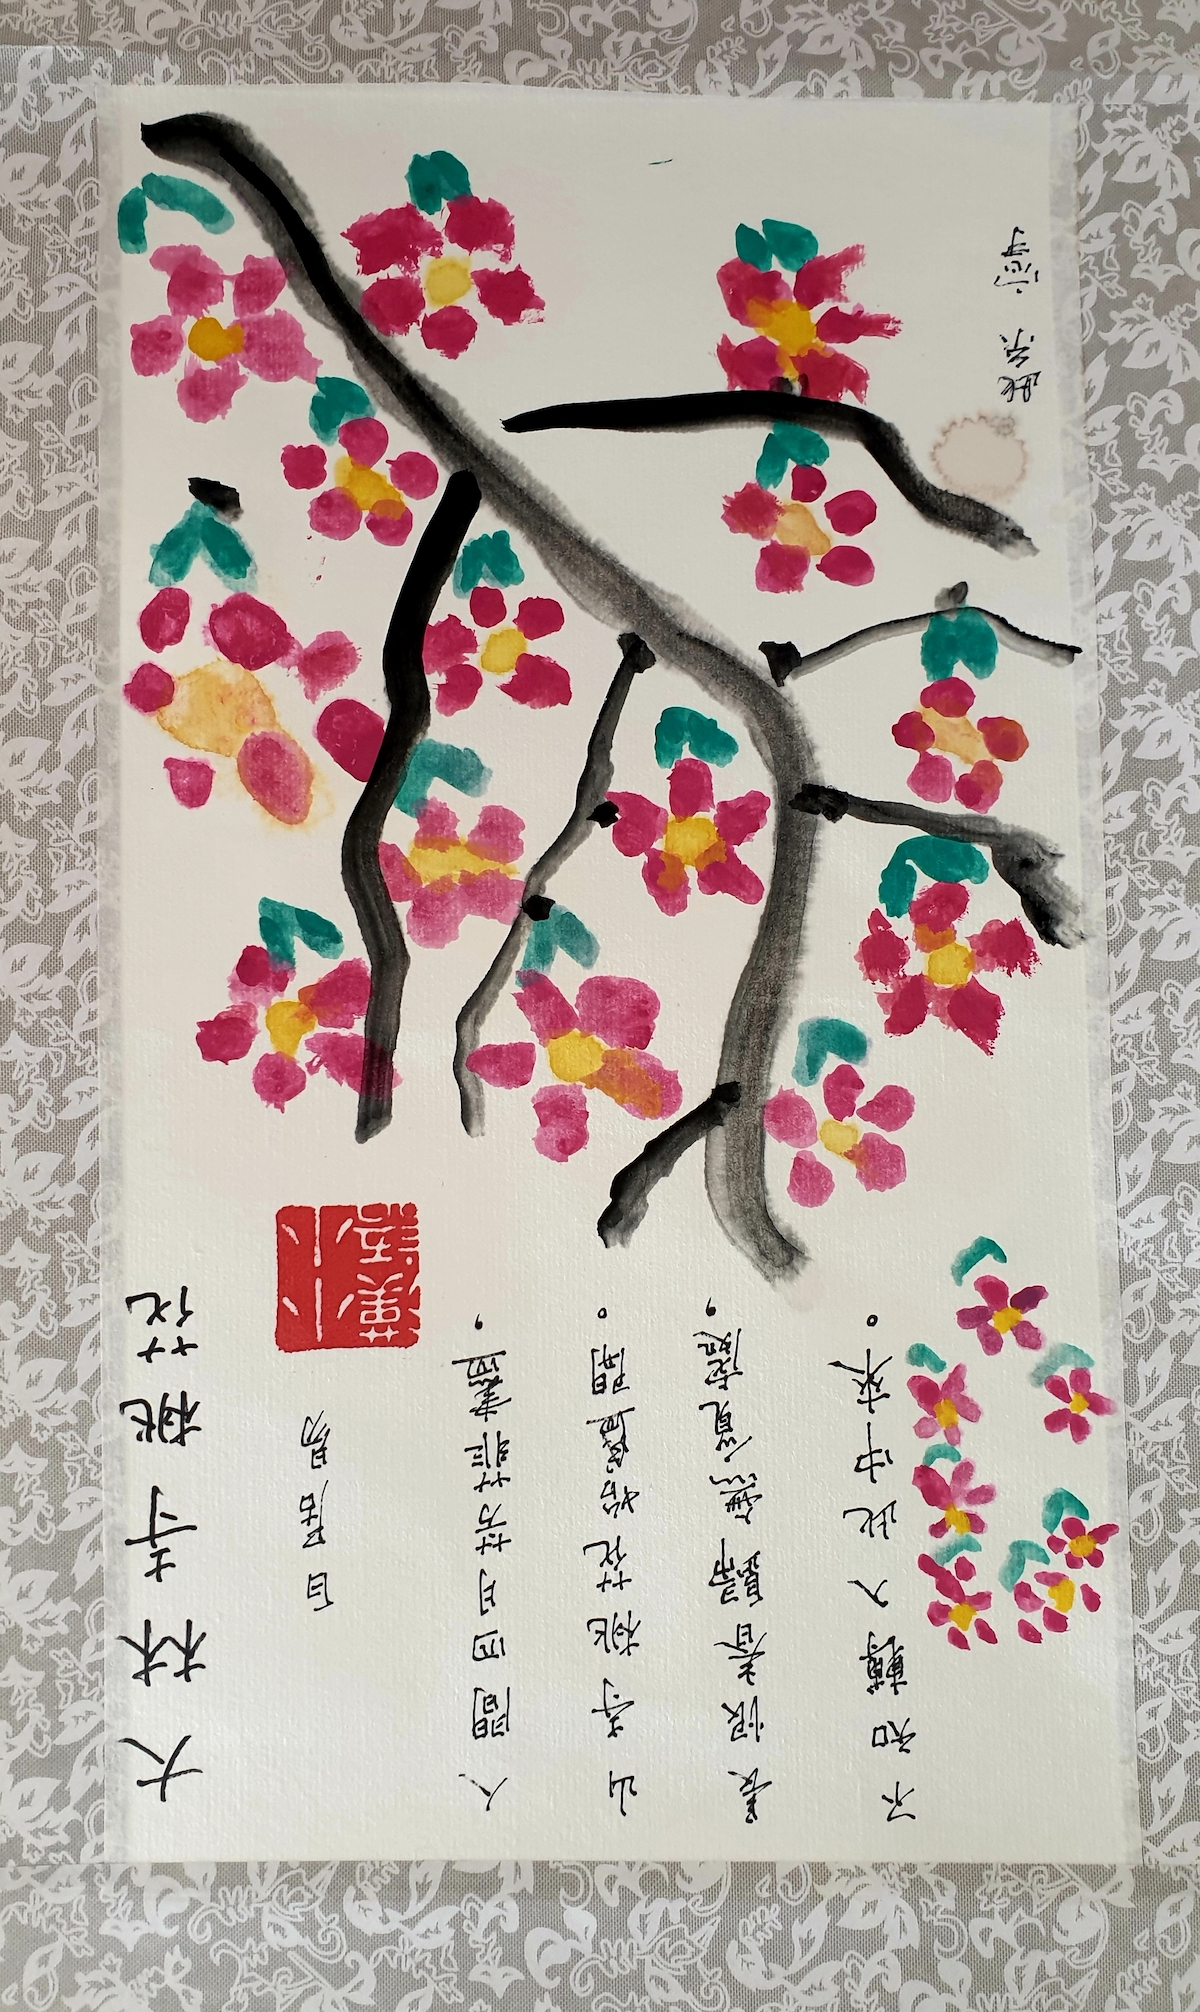 大林寺桃花
白居易
人間四月芳菲盡，
山寺桃花始盛開。
長恨春歸無覓處，
不知轉入此中來。